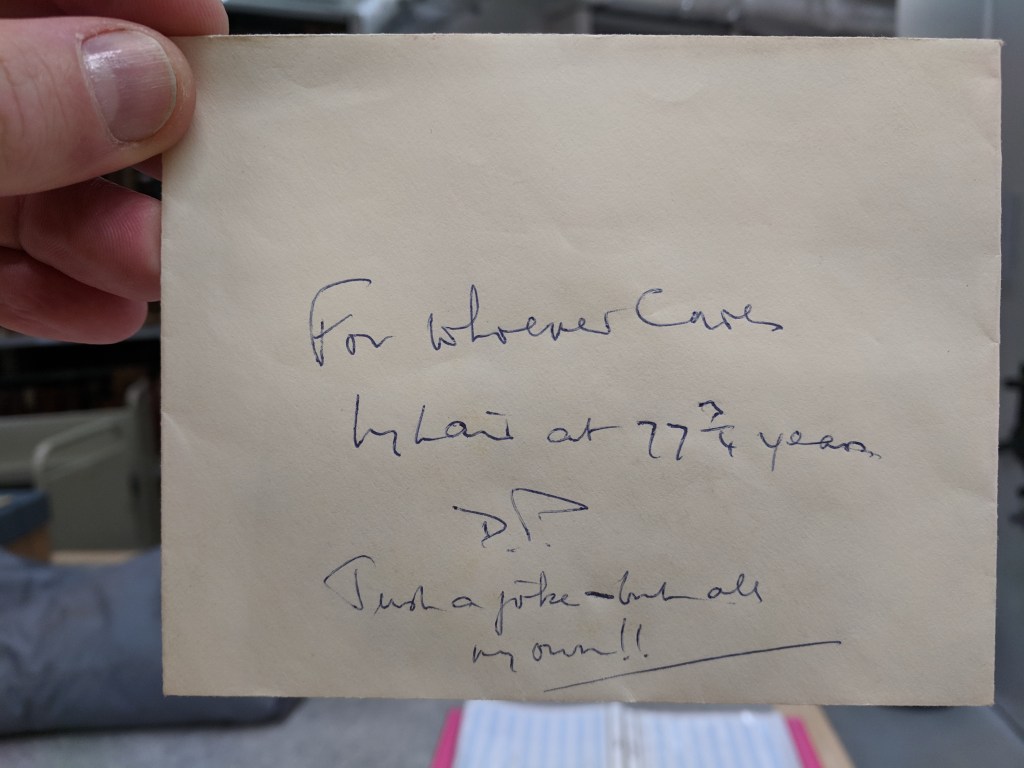 For whoever Cares
My hair at 77 3/4 years
D.P.
Just a joke – but all
my own!!